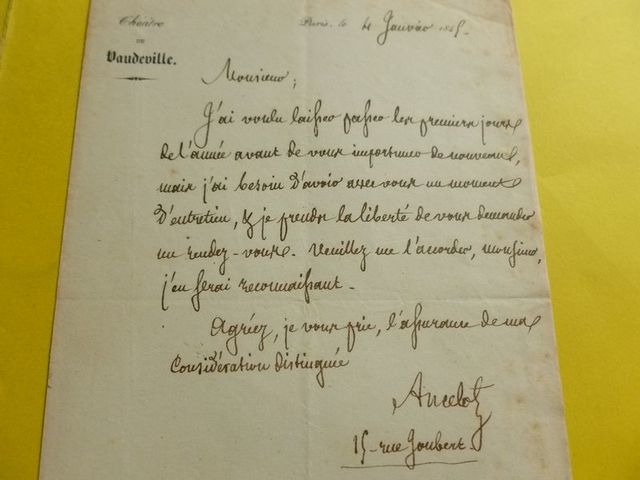 Théâtre
DU
Vaudeville.
Paris, le 4 Janvier 1845.
Monsieur,
J'ai voulu laisser passer les premiers jours
de l'année avant de vous importuner de nouveau,
mais j'ai besoin d'avoir avec vous un moment
d'entretien, & je prends la liberté de vous demander
un rendez-vous. Veuillez me l'accorder, monsieur,
j'en serai reconnaissant.
Agréez, je vous prie, l'assurance de ma
Considération distinguée
Ancelot
15 - rue Joubert.